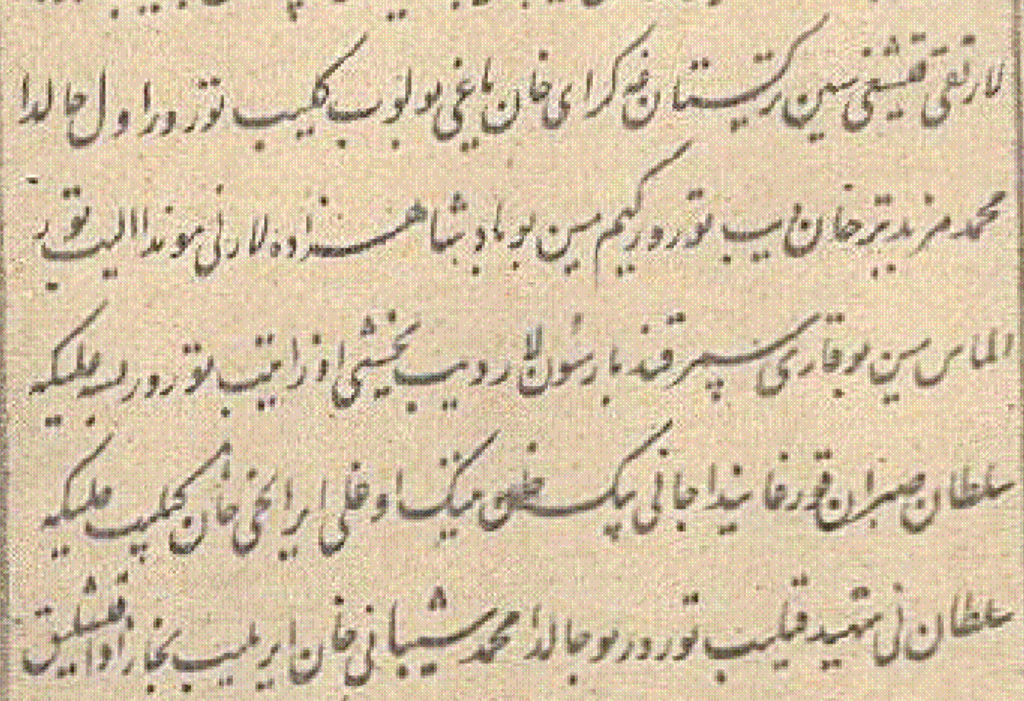 لار تقی قیشقی سین ترکستان غه کرای خان یاغی بولوب کلیب تورور اول حالدا
محمد مزید ترخان دیب تورور کیم مین بو پادشاهزاده لارنی موندا الیب تورا
الماس مین بو قاری سمرقند بارسون لار دیب یخشی اوزاتیب تورور بسه علیکه
سلطان صبران قورغانیدا جانی بیک نینک اوغلی ایرانخی خان کلیب علیکه
سلطان نی شهید قیلیب تورور بو حالدا محمد شیبانی خان ایریلیب بخارادا قیشلیق